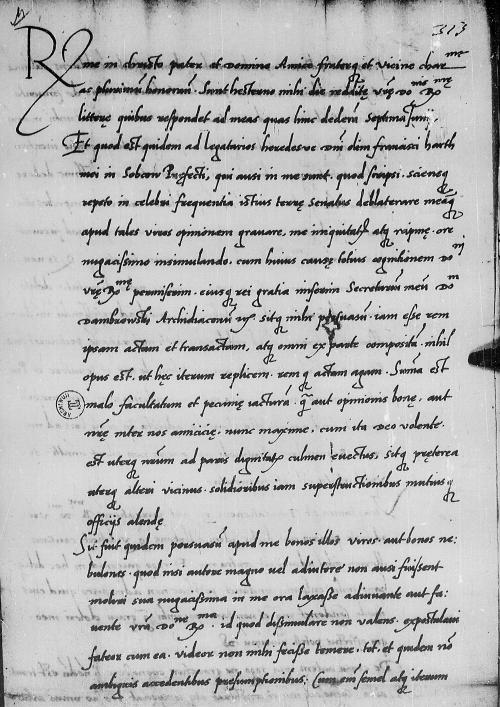 313
R me in christo pater et domine Amice fraterq et vicine char me
ac plurimũ honoran̄. Sunt hesterno mihi die redditę vrę Do nis Ro mę
litterę quibus respondet ad meas quas hinc dederã septima Junij.
Et quod est quidem ad legatarios heredesve dn̄i olim francisci
in Sobcow Pręfecti, qui ausi in me sunt. quod scripsi. sciensq
repeto in celebri frequentia istius terrę senatus deblaterare meãq
apud tales viros opinionem gravare, me iniquitatis atq rapinę. ore
nugacissimo insimulando. cum huius causę totius cognitionem Do ni
vrę Ro mę permiserim. eiusq rei gratia miserim Secretariũ meũ Do m
Dambrowski Archidiaconũ sitq mihi persuasũ. iam esse rem
ipsam actam et transactam, atq omni ex parte compositã. nihil
opus est. ut hęc iterum replicem. remq actam agam. Suma est
malo facultatum et pecunię iacturã. quã aut opinionis bonę, aut
nrę inter nos amicicię. nunc maxime. cum ita deo volente.
est uterq nrũm ad paris dignitatis culmen evectus. sitq pręterea
uterq alteri vicinus. solidioribus iam superstructionibus mutuisq
officijs alendę
Sic fuit quidem persuasũ apud me bonos illos viros. aut bonos ne:
bulones. quod nisi autore magno vel adiutore non ausi fuissent
molivi sua nugacissima in me ora laxasse adiuvante aut fa:
vente vrã Do ne Ro ma. id quod dissimulare non valens. expostulavi
fateor cum ea. videor non mihi fecisse temere. tot. et quidem nõ
ambiguis accedentibus pręsumptionibus: Cum em̃ semel atq iterum